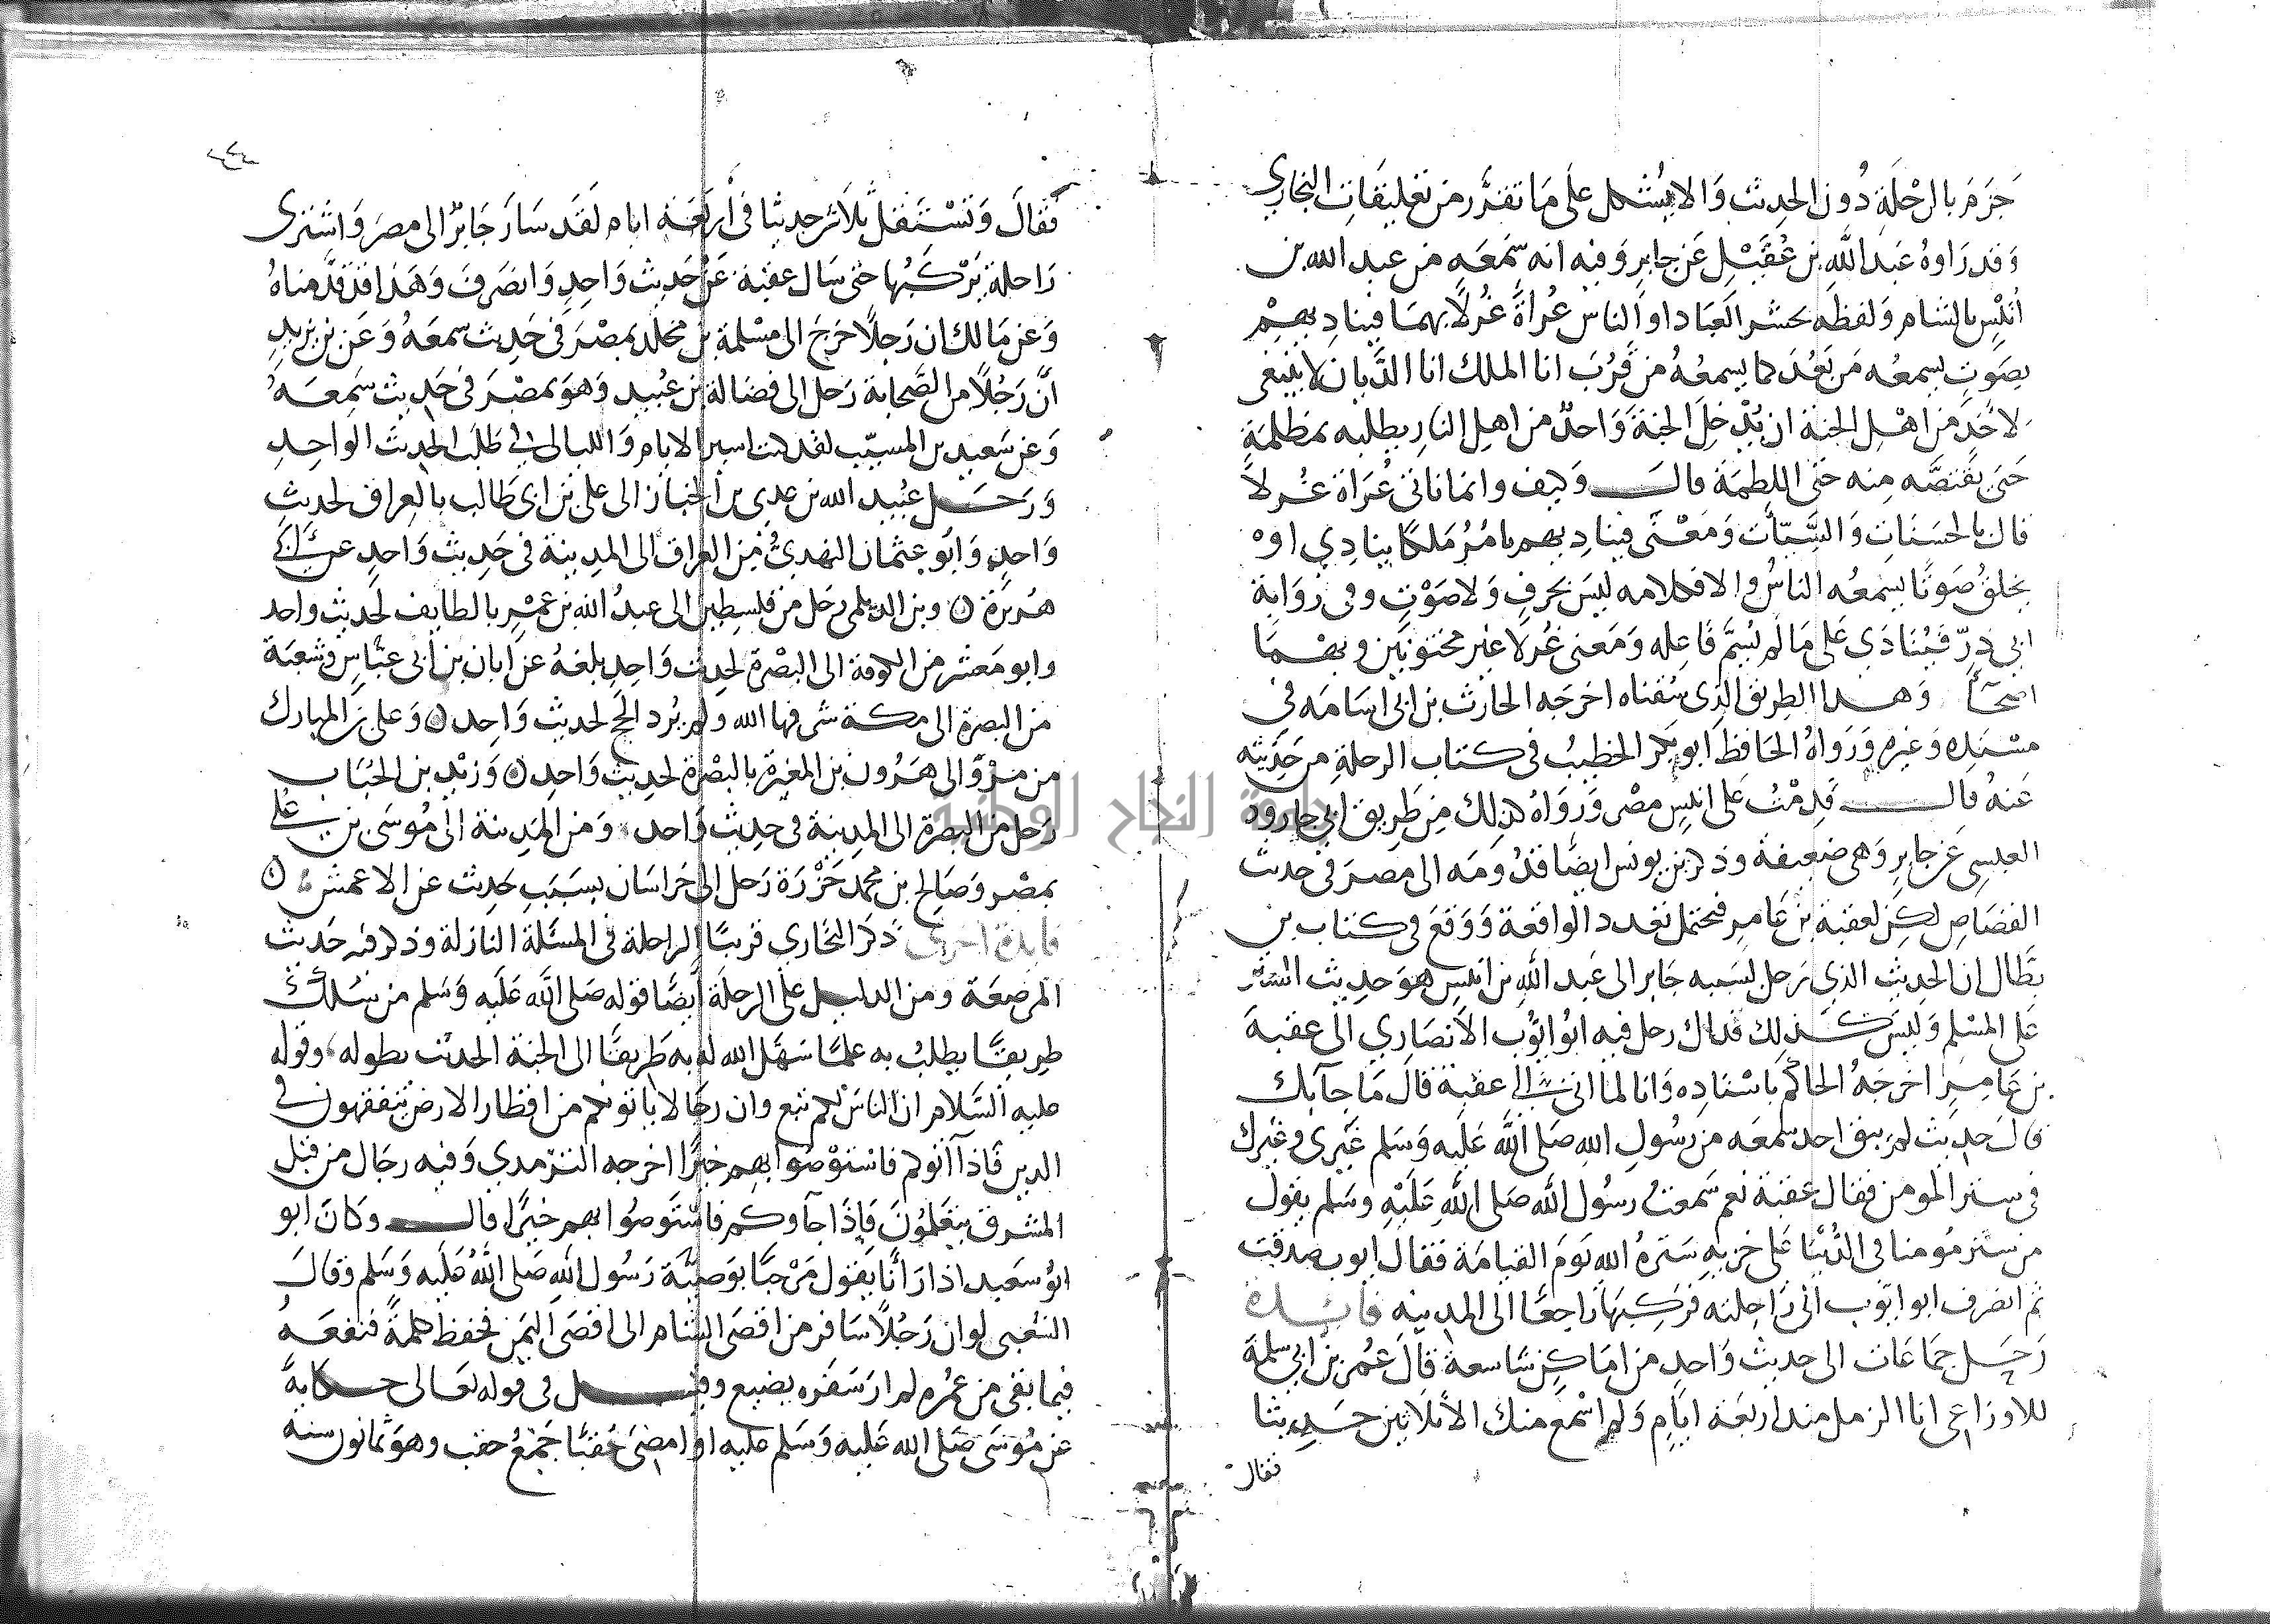 جزم بالرحلة دون الحديث والا يشكل على ما تقرر من تعليقات البخاري
وقد رواه عبد الله بن عقيل عن جابر وفيه انه سمعه من عبد الله بن
أنيس بالشام ولفظه يحشر العباد او الناس عراة غرلا بهما فيناديهم
بصوت يسمعه من بعد كما يسمعه من قرب انا الملك انا الديان لا ينبغي
لأحد من اهل الجنة ان يدخل الجنة وأحد من اهل النار يطلبه بمظلمة
حتى يقتصه منه حتى اللطمة قال وكيف وانما ناتي عراة غرلا
قال بالحسنات والسيئات ومعنى فيناديهم يامر ملكا ينادي او
يخلق صوتا يسمعه الناس والا فكلامه ليس بحرف ولا صوت وفي رواية
ابي ذر فينادى على ما لم يسم فاعله ومعنى غرلا غير مختونين وبهما
اصحاء وهذا الطريق الذي سقناه اخرجه الحارث بن ابي اسامه في
مسنده وغيره ورواه الحافظ ابو بكر الخطيب في كتاب الرحلة من حديثه
عنه قال قدمت على انيس مصر ورواه كذلك من طريق ابي جارود
العبسي عن جابر وهي ضعيفة وذكر بن يونس ايضا قدومه الى مصر في حديث
القصاص لكن لعقبة بن عامر فيحتمل تعدد الواقعة ووقع في كتاب بن
بطال ان الحديث الذي رحل بسببه جابر الى عبد الله بن انيس هو حديث الستر
على المسلم وليس كذلك فذاك رحل فيه ابو ايوب الأنصاري الى عقبة
بن عامر اخرجه الحاكم باسناده وانا لما اتى الى عقبة قال ما جآ بك
قال حديث لم يبق احد سمعه من رسول الله صلى الله عليه وسلم غيري وغيرك
في ستر المومن فقال عقبة نعم سمعت رسول الله صلى الله عليه وسلم يقول
من ستر مومنا في الدنيا على خزيه ستره الله يوم القيامة فقال ايوب صدقت
ثم انصرف ابو ايوب الى راحلته فركبها راجعا الى المدينه فائدة
رحل جماعات الى حديث واحد من اماكن شاسعة قال عمر بن ابي سلمة
للاوزاعي انا الزمك منذ اربعة ايام ولم اسمع منك الا ثلاثين حديثا
فقال
فقال وتستقل ثلاثين حديثا في أربعة ايام لقد سار جابر الى مصر واشترى
راحلة يركبها حتى سال عقبة عن حديث واحد وانصرف وهذا قد قدمناه
وعن مالك ان رجلا خرج الى مسلمة بن مخلد بمصر في حديث سمعه وعن بن بريد
أن رجلا من الصحابة رحل الى فضالة بن عبيد وهو بمصر في حديث سمعه
وعن سعيد بن المسيب لقد كنت اسير الايام والليالي في طلب الحديث الواحد
ورحل عبيد الله بن عدي بن الخيار الى علي بن ابي طالب بالعراق لحديث
واحد وابو عثمان النهدي من العراق الى المدينة في حديث واحد عن ابي
هريرة وبن الديلمي رحل من فلسطين الى عبد الله بن عمر بالطايف لحديث واحد
وابو معشر من الكوفة الى البصرة لحديث واحد بلغه عن أبان بن أبي عياش وشعبة
من البصرة الى مكة شرفها الله ولم يرد الحج لحديث واحد وعلي بن المبارك
من مرو الى هرون بن المغيرة بالبصرة لحديث واحد وزيد بن الحباب
رحل من البصرة الى المدينة في حديث واحد ومن المدينة الى موسى بن علي
بمصر وصالح بن محمد جزرة رحل الى خراسان بسبب حديث عن الاعمش
فايدة اخرى ذكر البخاري قريبا الراحلة في المسئلة النازلة وذكر فيه حديث
المرضعة ومن الدليل على الرحلة أيضا قوله صلى الله عليه وسلم من سلك
طريقا يطلب به علما سهل الله له به طريقا الى الجنة الحديث بطوله وقوله
عليه السلام ان الناس لكم تبع وان رجالا ياتونكم من اقطار الارض يتفقهون في
الدين فاذا آتوكم فاستوصوا بهم خيرا اخرجه الترمدي وفيه رجال من قبل
المشرق يتعلمون فإذا جآوكم فاستوصوا بهم خيرا قال وكان ابو
ابو سعيد اذا رأنا يقول مرحبا بوصية رسول الله صلى الله عليه وسلم وقال
الشعبي لو ان رجلا سافر من اقصى الشام الى اقصى اليمن فحفظ كلمة فنفعه
فيما بقي من عمره لم ار سفره يضيع وقيل في قوله تعالى حكاية
عن موسى صلى الله عليه وسلم عليه او امضي حقبا جمع حقب وهو ثمانون سنه
جامعة النجاح الوطنية